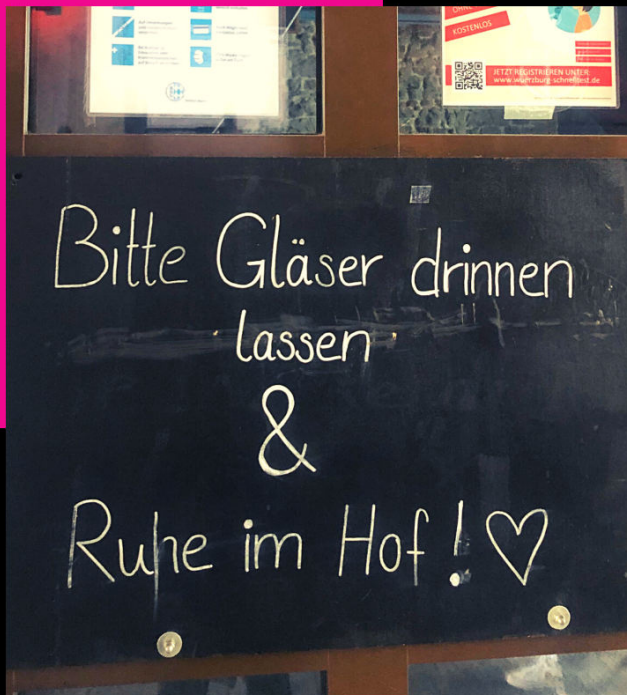 KOSTENLOS
JETZT REGISTRIEREN UNTER:
www.wuerzburg-schnelltest.de
Bitte Gläser drinnen
lassen
&
Ruhe im Hof! ♡